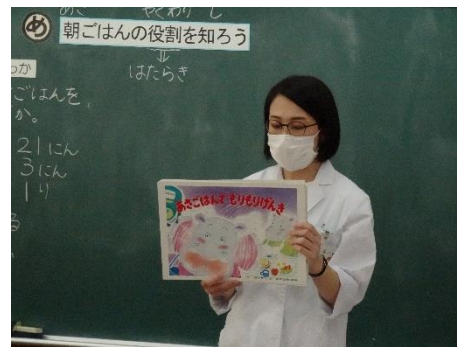 めあて やくわり し
め 朝ごはんの役割を知ろう
⇓
はたらき
ごはんを
か。
21にん
3にん
1り
あさごはんで もりもりげんき